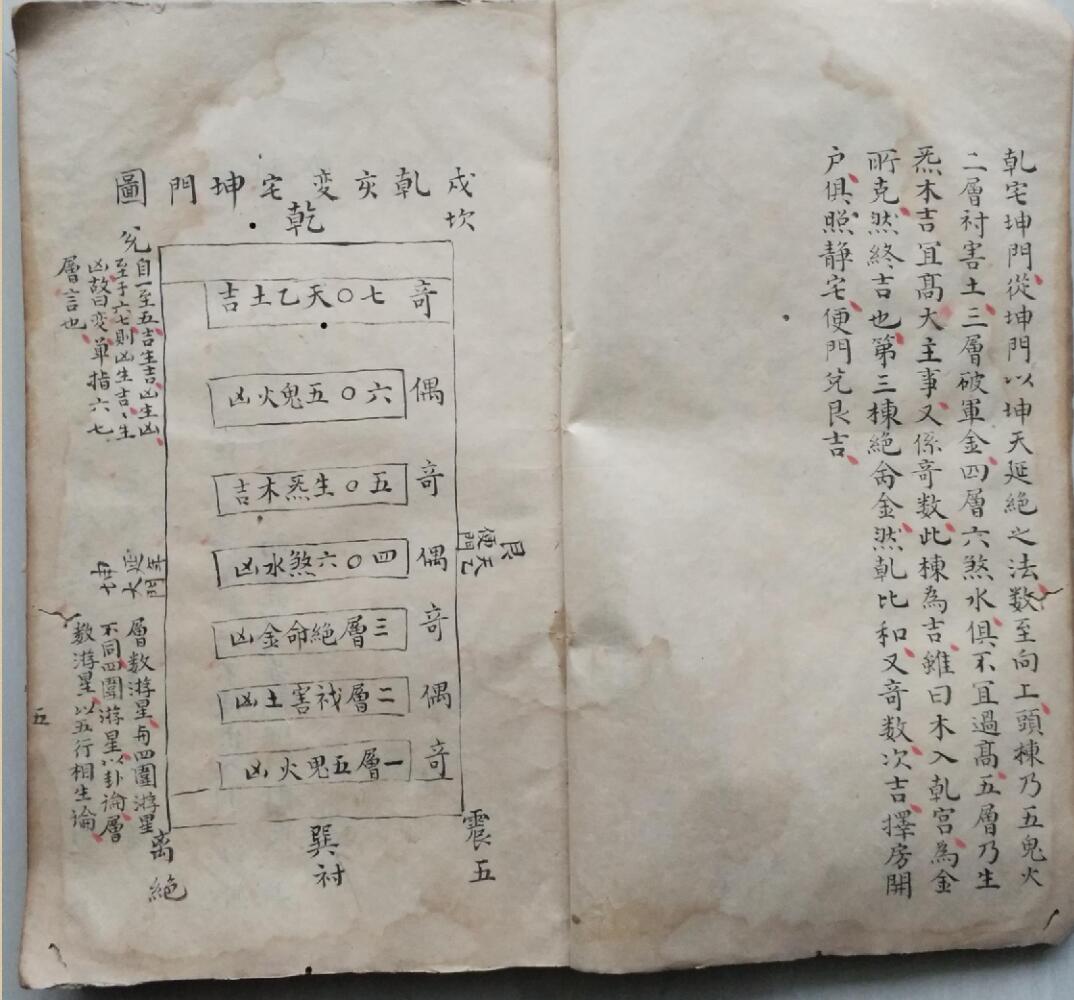 乹宅坤門從坤門以坤天延絕之法数至向上頭棟乃五鬼火
二層衬害土三層破軍金四層六煞水俱不宜過高五層乃生
炁木吉宜髙大主事又係竒数此棟為吉雖曰木入乹宫為金
所克然終吉也第三棟絕命金然乹比和又竒数次吉擇房開
户俱照静宅便門兌艮吉
戍乹亥変宅坤門圖
坎
乾
兌
自一至五吉生吉凶生凶
至于六七則凶生吉吉生
凶故曰変单指六七
層言也
竒 七〇天乙土吉
偶 六〇五鬼火凶
竒 五〇生炁木吉
偶 四〇六煞水凶
竒 三層絕命金凶
偶 二層衬害土凶
竒 一層五鬼火凶
艮天乙
便門
層数游星与四圍游星
不同四圍游星以卦論層
数游星以五行相生論
震五
巽衬
离絕
五